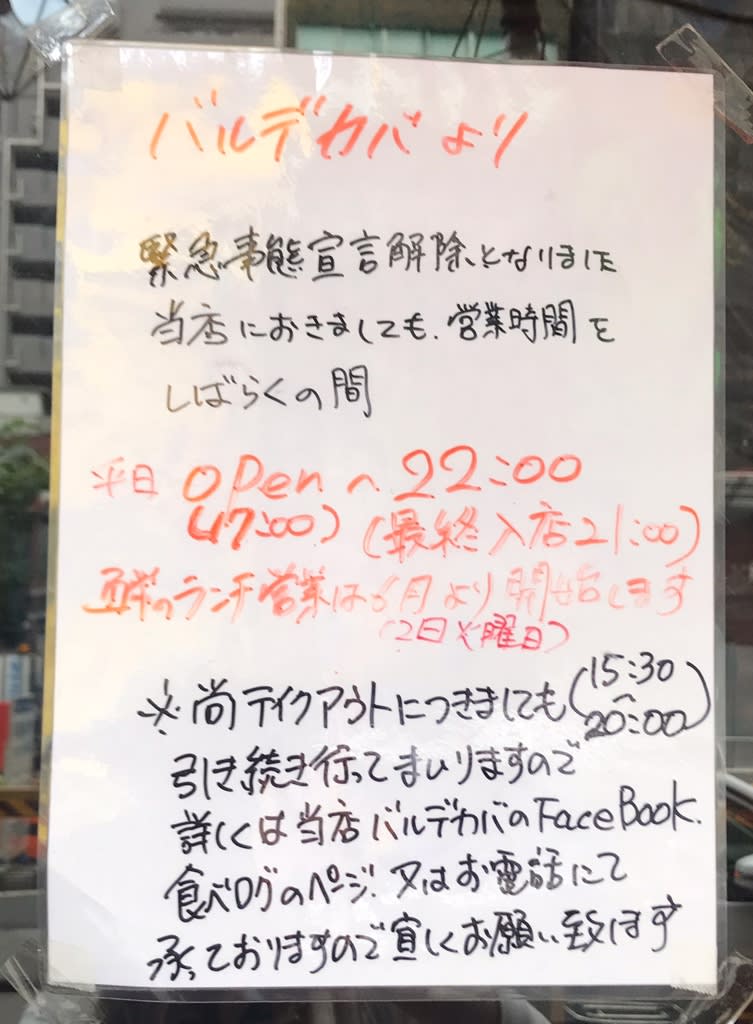 バルデカバより
緊急事態宣言解除となりました
当店におきましても、営業時間を
しばらくの間
平日 open〜22:00
(17:00) (最終入店21:00)
ランチ営業は6月より開始します
(2日火曜日)
※尚テイクアウトにつきましても(15:30〜20:00)
引き続き行ってまいりますので
詳しくは当店バルデカバのFaceBook.
食べログのページ、又はお電話にて
承っておりますので宜しくお願い致します